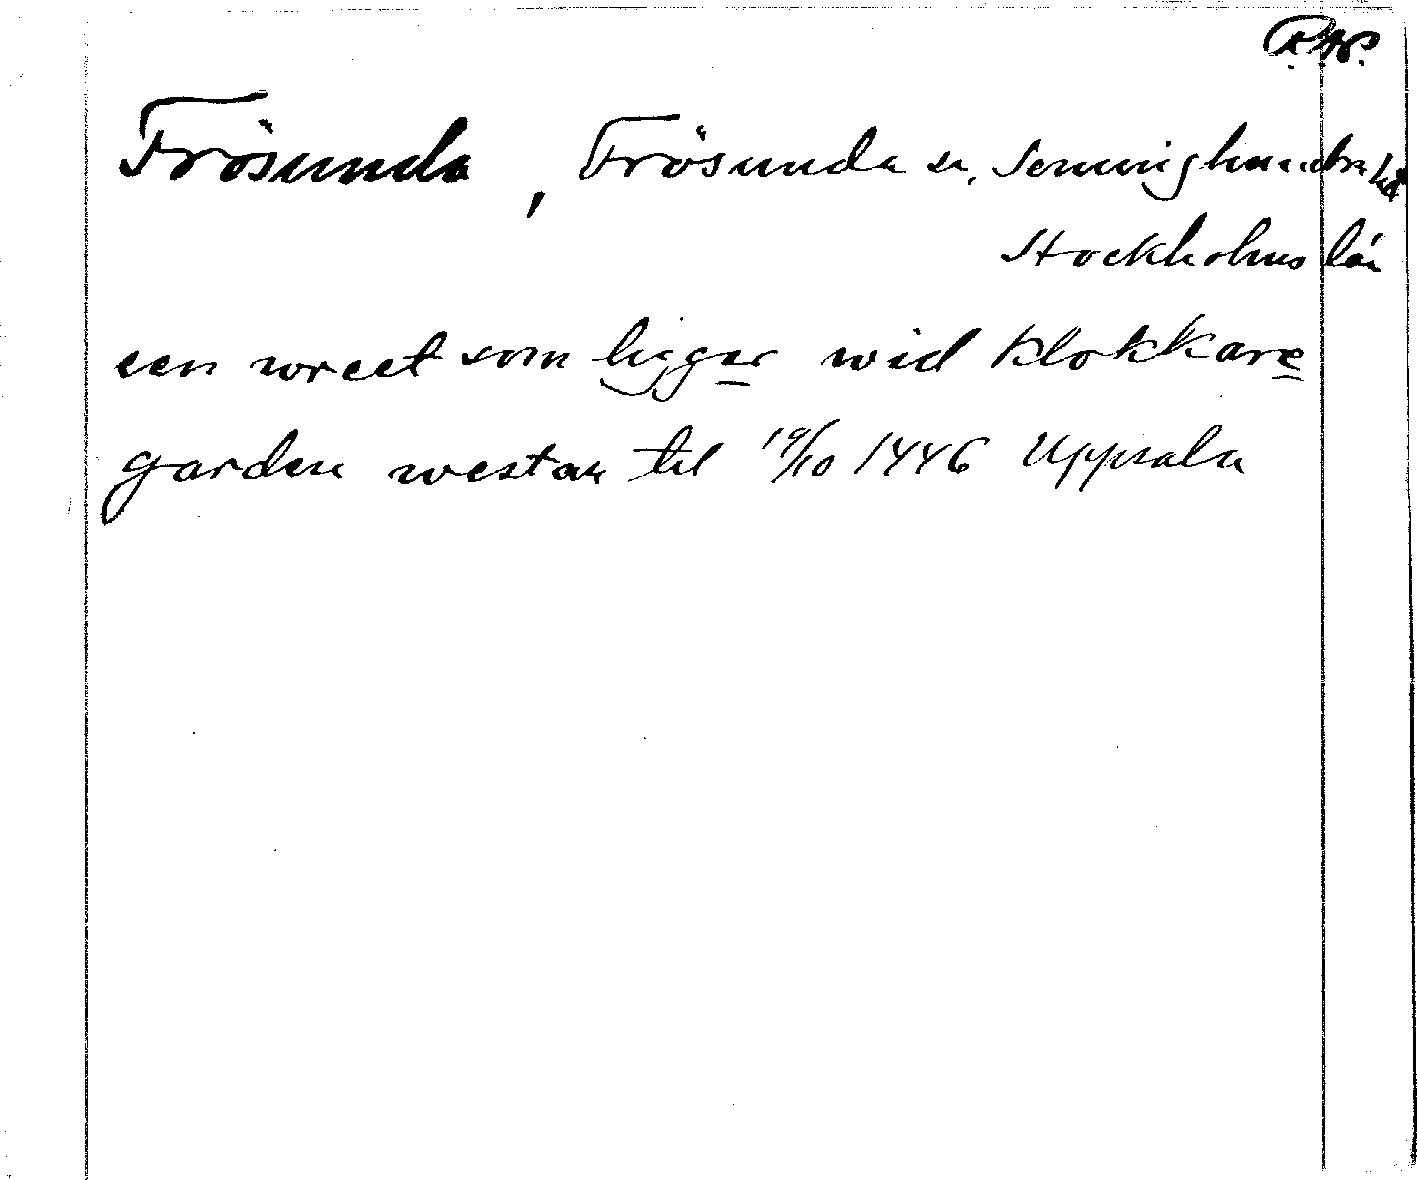 Frösunda, Frösunda sn, Seminghundra hd
Stockholms län
een wreet som ligger wid klokkare
garden westan til 19/10 1446 Uppsala